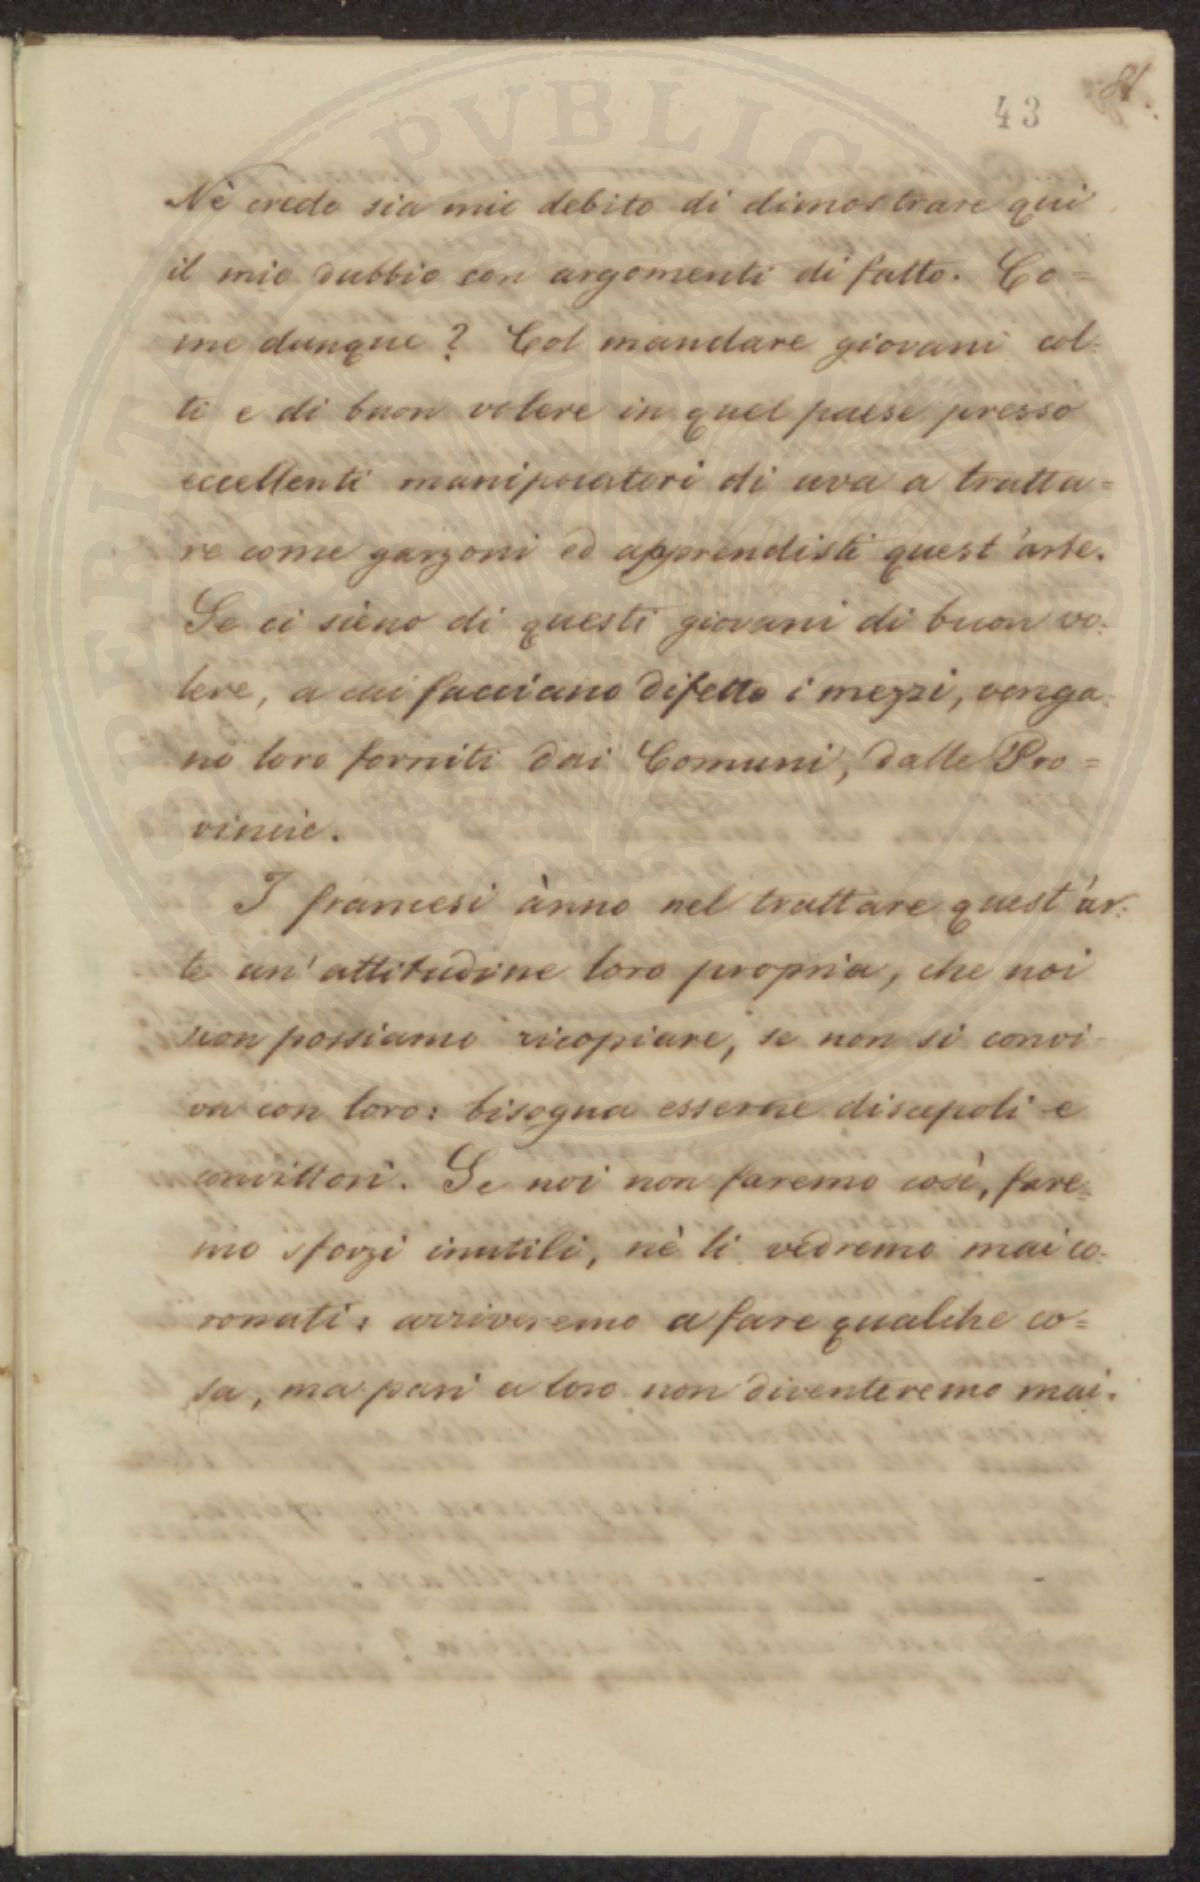 81.
43
Nè credo sia mio debito di dimostrare qui
il mio dubbio con argomenti di fatto. Co=
me dunque? Col mandare giovani col-
ti e di buon volere in quel paese presso
eccellenti manipolatori di uva a tratta=
re come garzoni ed apprendisti quest'arte.
Se ci sieno di questi giovani di buon vo-
lere, a cui facciano difetto i mezzi, venga-
no loro forniti dai Comuni, dalle Pro=
vincie.
I francesi ànno nel trattare quest'ar-
te un' attitudine loro propria, che noi
non possiamo ricopiare, se non si convi-
va con loro: bisogna esserne discepoli e
convittori. Se noi non faremo così, fare-
mo sforzi inutili, nè li vedremo mai co-
ronati: arriveremo a fare qualche co=
sa, ma pari a loro non diventeremo mai.